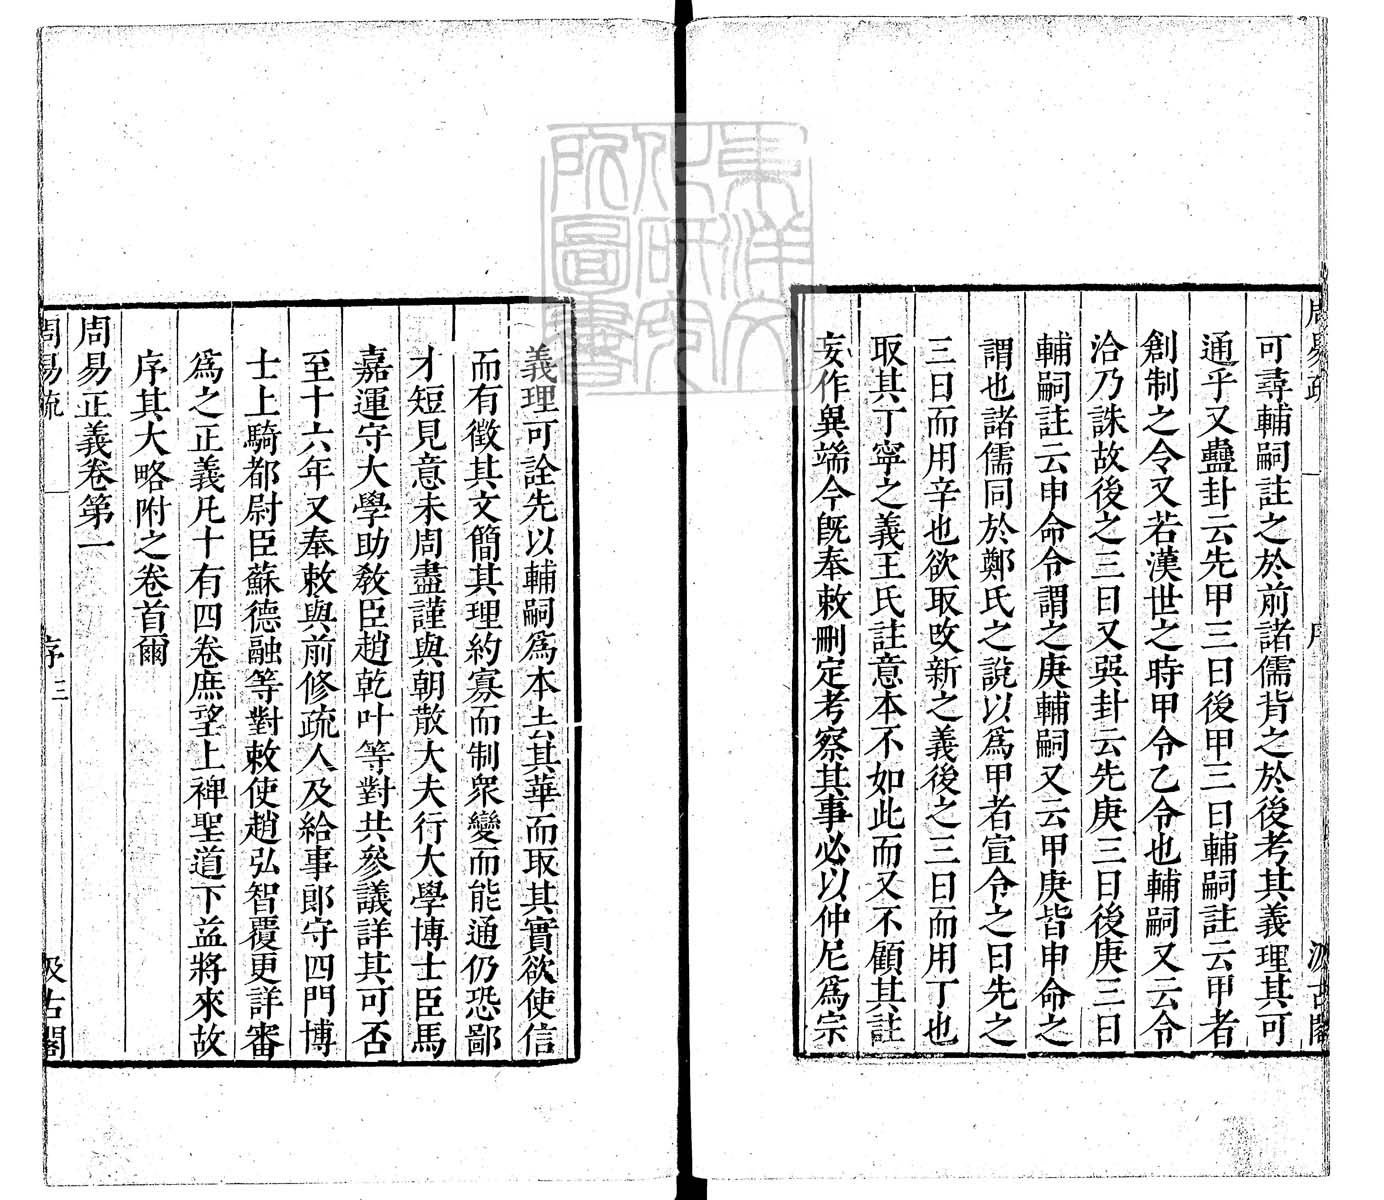 周易疏 序 汲古閣
可尋輔嗣註之於前諸儒背之於後考其義理其可
通乎又蠱卦云先甲三日後甲三日輔嗣註云甲者
創制之令又若漢世之時甲令乙令也輔嗣又云令
洽乃誅故後之三日又巽卦云先庚三日後庚三日
輔嗣註云申命令謂之庚輔嗣又云甲庚皆申命之
謂也諸儒同於鄭氏之說以爲甲者宣令之日先之
三日而用辛也欲取改新之義後之三日而用丁也
取其丁寧之義王氏註意本不如此而又不顧其註
妄作異端今既奉敕刪定考察其事必以仲尼爲宗
義理可詮先以輔嗣爲本去其華而取其實欲使信
而有徵其文簡其理約寡而制衆變而能通仍恐鄙
才短見意未周盡謹與朝散大夫行大學博士臣馬
嘉運守大學助敎臣趙乾叶等對共參議詳其可否
至十六年又奉敕與前修疏人及給事郎守四門博
士上騎都尉臣蘇德融等對敕使趙弘智覆更詳審
爲之正義凡十有四卷庶望上裨聖道下益將來故
序其大略附之卷首爾
周易正義卷第一
周易疏 序 三 汲古閣
東洋文
化研究
所圖書